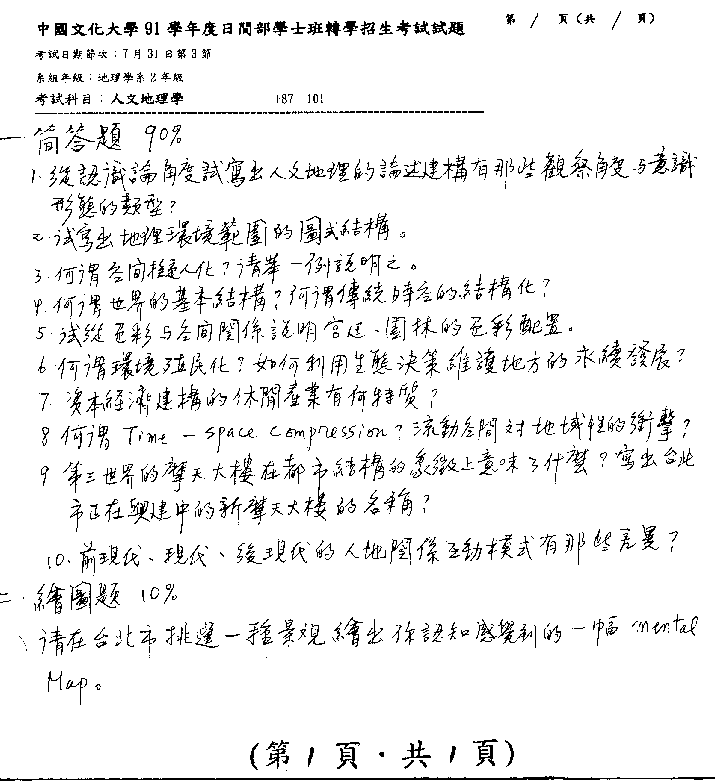 中國文化大學91學年度日間部學士班轉學招生考試試題 第 1 頁(共 1 頁)
考試日期節次:7月31日第3節
系組年級:地理學系2年級
考試科目:人文地理學 187 101
一 简答題 90%
1. 從認識論角度試寫出人文地理的論述建構有那些觀察角度与意識
形態的類型?
2. 试寫出地理環境範圍的圖式結構。
3. 何谓空间擬人化?请举一例說明之。
4. 何谓世界的基本結構?何谓傳統時空的結構化?
5. 试從色彩与空间関係說明宫廷、園林的色彩配置。
6. 何谓環境殖民化?如何利用生態決策維護地方的永續發展?
7. 資本經濟建構的休閒產業有何特質?
8 何谓 Time - space compression?流動空間对地域性的衝擊?
9 第三世界的摩天大樓在都市結構的象徵上意味了什麼?寫出台北
市正在興建中的新摩天大樓的名稱?
10. 前現代、現代、後現代的人地関係互動模式有那些差異?
二. 繪圖題 10%
请在台北市挑選一種景观繪出你認知感覺到的一幅 mental
Map。
(第 1 頁·共 1 頁)